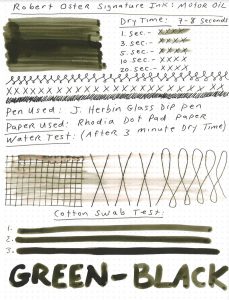 Robert Oster Signature Ink: Motor Oil
Dry Time: 7-8 Seconds
1 sec.-
3 sec.- XXXX
5 sec.- XXXX
10 sec.- XXXX
20 sec.- XXXX
Pen Used: J. Herbin Glass Dip Pen
Paper Used: Rhodia Dot Pad Paper
Water Test: (After 3 minute Dry Time)
Cotton Swab Test:
1.
2.
3.
GREEN-BLACK